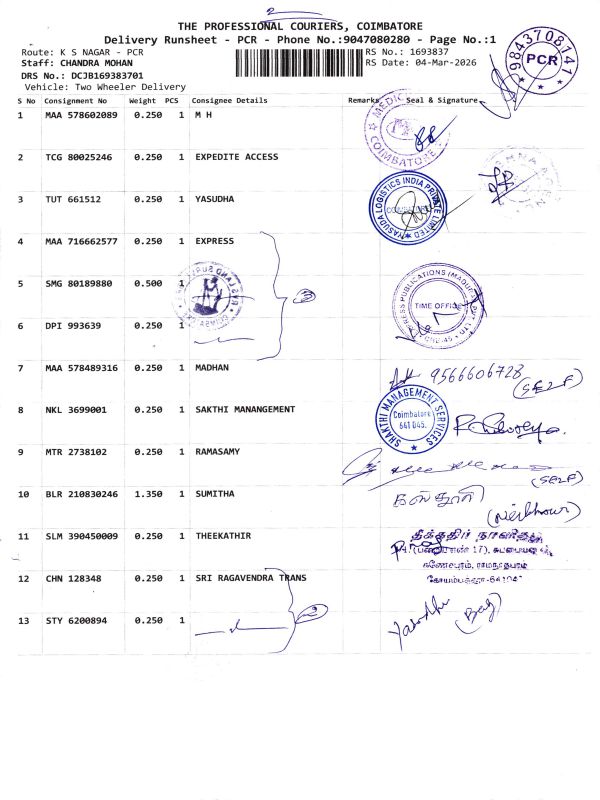 2
THE PROFESSIONAL COURIERS, COIMBATORE
Delivery Runsheet - PCR - Phone No.:9047080280 - Page No.:1
Route: K S NAGAR - PCR
RS No.: 1693837
Staff: CHANDRA MOHAN
RS Date: 04-Mar-2026
DRS No.: DCJB169383701
Vehicle: Two Wheeler Delivery
9843708141
PCR
S No Consignment No Weight PCS Consignee Details Remarks Seal & Signature
1 MAA 578602089 0.250 1 M H
COIMBATORE
2 TCG 80025246 0.250 1 EXPEDITE ACCESS
3 TUT 661512 0.250 1 YASUDHA
YASUDA LOGISTICS INDIA PRIVATE LIMITED
4 MAA 716662577 0.250 1 EXPRESS
5 SMG 80189880 0.500 1
3
TIME OFFICE
6 DPI 993639 0.250 1
7 MAA 578489316 0.250 1 MADHAN
9566606728
(SELF)
8 NKL 3699001 0.250 1 SAKTHI MANANGEMENT
SHAKTHI MANAGEMENT SERVICES
Coimbatore
641 045.
9 MTR 2738102 0.250 1 RAMASAMY
(SELF)
10 BLR 210830246 1.350 1 SUMITHA
கஸ்தூரி
(Neighbour)
11 SLM 390450009 0.250 1 THEEKATHIR
தீக்கதிர் நாளிதழ்
12 CHN 128348 0.250 1 SRI RAGAVENDRA TRANS
கோயம்புத்தூர்-641045
13 STY 6200894 0.250 1
2
Yasodha
(Bag)